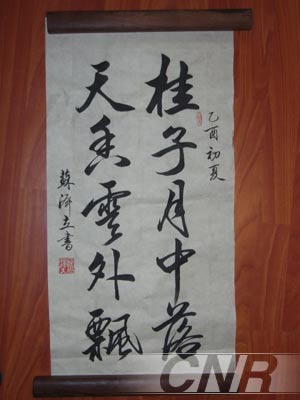 乙酉初夏
桂子月中落
天香雲外飄
蘇澤立書
CNR